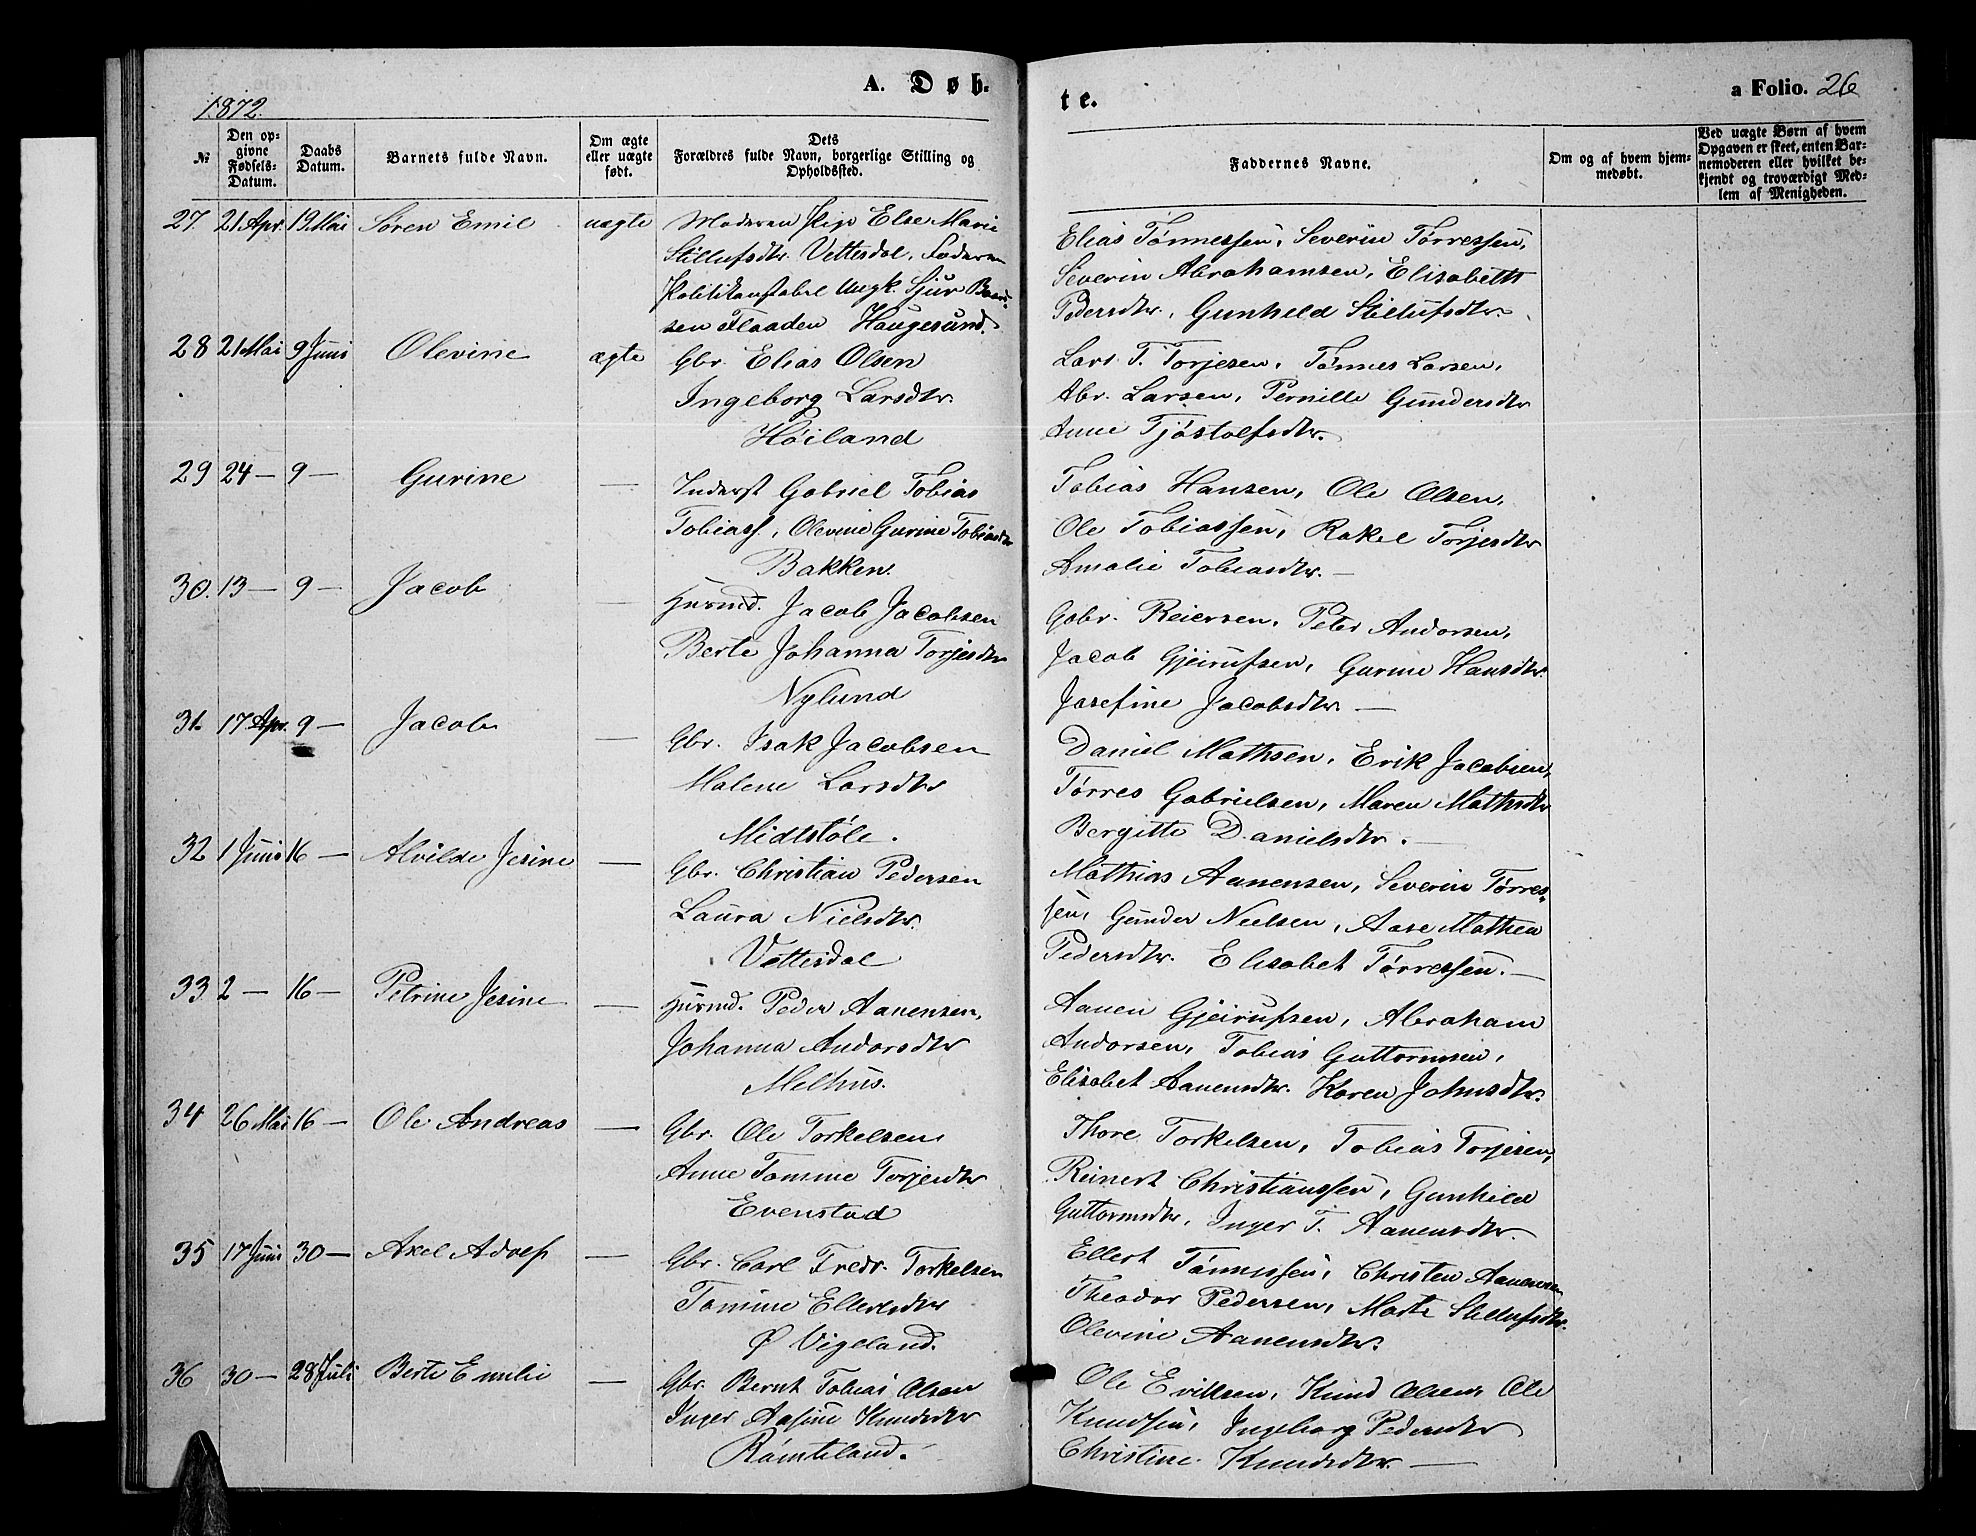 1872.
A. Døb-
te.
a Folio. 26
№
Den op-
givne
Fødsels-
Datum.
Daabs
Datum.
Barnets fulde Navn.
Om ægte
eller uægte
født.
Dets
Forældres fulde Navn, borgerlige Stilling og
Opholdssted.
Faddernes Navne.
Om og af hvem hjem-
medøbt.
Ved uægte Børn af hvem
Opgaven er skeet, enten Bar-
nemoderen eller hvilket be-
kjendt og troværdigt Med-
lem af Menigheden.
27. 21 Apr. 19 Mai Søren Emil uægte Moderen Pige Else Marie
Stillufsdtr. Vettesdal, Faderen
Politikonstabel Ungk. Sjur Baar-
sen Flaaden Haugesund.
Elias Tønnessen, Severin Tørressen,
Severin Abrahamsen, Elisabeth
Pedersdtr., Gunhild Stillufsdtr.
28 21 Mai 9 Juni Olevine ægte Gbr. Elias Olsen
Ingeborg Larsdtr.
Høiland
Lars T. Torjesen, Tønnes Larsen,
Abr. Larsen, Pernille Gundersdtr
Anne Tjøstolfsdtr.
29 24 — 9 — Gurine — Inderst Gabriel Tobias
Tobiass., Olevine Gurine Tobiasdtr
Bakken.
Tobias Hansen, Ole Olsen,
Ole Tobiassen, Rakel Torjesdtr
Amalie Tobiasdtr. —
30. 13 — 9 — Jacob — Husmd. Jacob Jacobsen
Berte Johanna Torjesdtr
Nylund
Gabr. Reiersen, Peter Andorsen,
Jacob Gjeirufsen, Gurine Hansdtr.
Josefine Jacobsdtr. —
31. 17 Apr. 9 — Jacob — Gbr. Isak Jacobsen
Malene Larsdtr
Midtstøle.
Daniel Mathsen, Erik Jacobsen,
Tørres Gabrielsen, Maren Mathsdtr
Bergitte Danielsdtr. —
32 1 Juni 16 — Alvilde Jesine — Gbr. Christian Pedersen
Laura Nielsdtr.
Vettesdal
Mathias Aanensen, Severin Tørres-
sen, Gunder Neelsen, Aase Mathea
Pedersdtr. Elisabet Tørressen. —
33 2 — 16 — Petrine Jesine — Husmd. Peder Aanensen,
Johanna Andorsdtr
Melhus.
Aanen Gjeirufsen, Abraham
Andorsen, Tobias Guttormsen,
Elisabet Aanensdtr. Karen Johnsdtr.
34 26 Mai 16 — Ole Andreas — Gbr. Ole Torkelsen
Anne Tomine Torjesdtr
Evenstad
Thore Torkelsen, Tobias Torjesen,
Reinert Christianssen, Gunhild
Guttormsdtr, Inger T. Aanensdtr.
35 17 Juni 30 — Axel Adolf — Gbr. Carl Fredr. Torkelsen
Tomine Ellertsdtr
Ø Vigeland.
Ellert Tønnessen, Christen Aanensen
Theodor Pedersen, Marte Stillufsdtr.
Olevine Aanensdtr.
36 30 — 28 Juli Berte Emilie — Gbr. Bernt Tobias Olsen
Inger Aasine Knudsdtr
Rømteland.
Ole Eriksen, Knud Olsen, Ole
Knudsen, Ingeborg Pedersdtr
Christine Knudsdtr. —